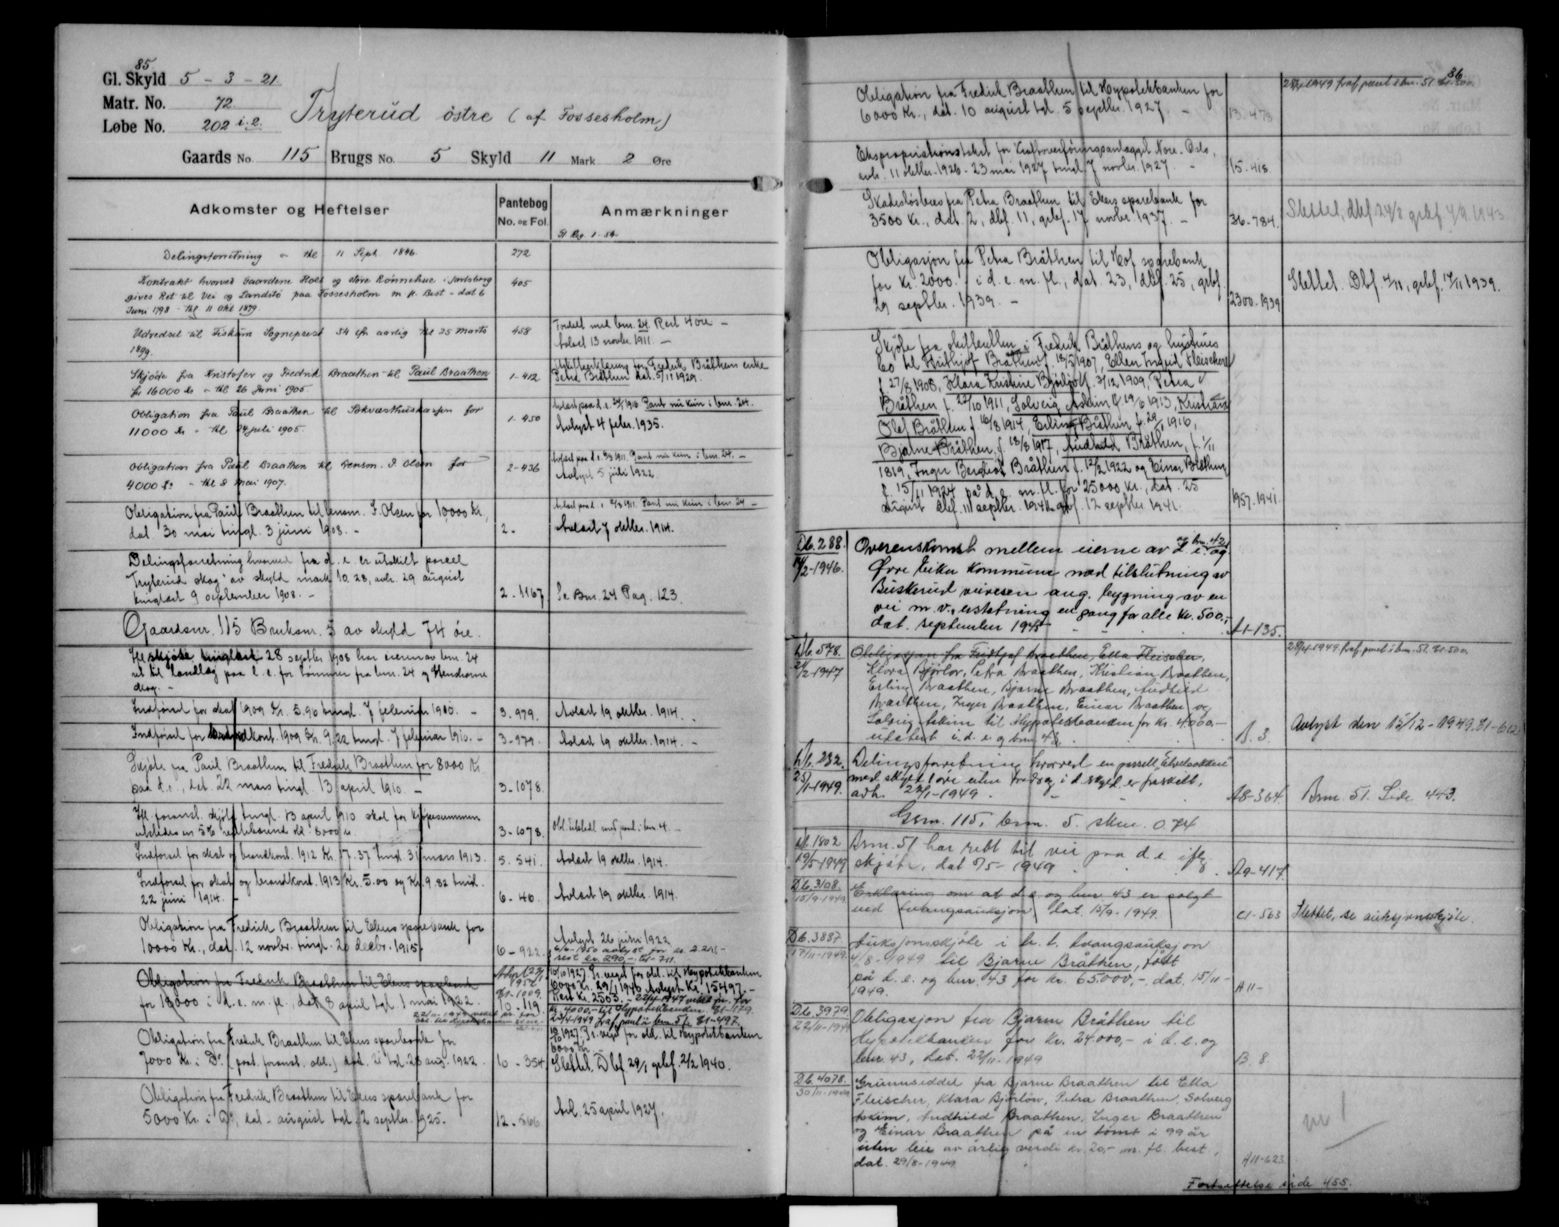 85
Gl. Skyld 5 - 3 - 21
Matr. No. 72
Løbe No. 202 i.2.
Tryterud östre (af Fossesholm)
Gaards No. 115 Brugs No. 5 Skyld 11 Mark 2 Øre
Adkomster og Heftelser
Pantebog No. og Fol.
Anmærkninger
Delingsforretning - thl 11 Sept. 1896.
272
Kontrakt hvorved Gaardene Hals og store Rønnehue i Jarlsberg
gives Ret til Vei og Landsto paa Fossesholm m. fl. Best - dat 6
Juni 1798 - thl 11 Okt 1879.
405
Udredsel til Fiskum Sogneprest 34 øre aarlig thl 25 Marts
1899.
458
Fordelt med brn. 24. Rest 4 øre -
Avlæst 13 novbr. 1911. -
Skjøde fra Kristofer og Fredrik Braathen til Paul Braathen
for 16000 kr - thl 26 Juni 1905
1-412
Skifteerklæring for Fredrik Bråthens enke
Petra Bråthen dat. 5/11 1929.
Obligation fra Paul Braathen til
11000 kr - thl 24 juli 1905.
1-450
Pant nu kun i brn. 24.
Avlyst 4 febr. 1935.
Obligation fra Paul Braathen til Lensm. I. Olsen for
4000 kr - thl 8 Mai 1907.
2-436
Pant nu kun i brn. 24. -
Avlyst 5 juli 1922.
Obligation fra Paul Braathen til lensm. I. Olsen for 10000 kr,
dat 30 mai tingl. 3 juni 1908. -
2 -
Pant nu kun i brn 24 -
Avlæst 7 oktbr. 1914.
Delingsforretning hvorved fra d. e. er utskilt parcel
"Tryterud skog" av skyld mark 10.28, avh. 29 august
tinglæst 9 september 1908. -
2 - 1167
Se Brn. 24 Pag. 123.
Gaardsnr. 115 Bruksnr. 5 av skyld 74 øre.
Ifl skjøte tinglæst 28 septbr 1908 har eieren av brn. 24
ret til landlæg paa d. e. for tømmer fra brn. 24 og
Indførsel for skat 1909 Kr. 5.90 tingl. 7 februar 1910. -
3-979.
Avlæst 19 oktbr. 1914.
Indførsel for brandkont. 1909 Kr. 9,22 tingl. 7 februar 1910. -
3-979.
Avlæst 19 oktbr. 1914. -
Skjøte fra Paul Braathen til Fredrik Braathen for 8000 Kr
paa d. e., dat. 22 mars tingl. 13 april 1910. -
3-1078.
Ifl foranst. skjøte tingl. 13 april 1910 skal for kjøpesummen
utstedes en
3-1078.
Indførsel for skat og brandkont. 1912 Kr. 17.37 tingl 31 mars 1913.
5. 541.
Avlæst 19 oktbr. 1914.
Indførsel for skat og brandkont. 1913 Kr. 5.00 og Kr 9.82 tingl.
22 juni 1914. -
6 - 40.
Avlæst 19 oktbr. 1914.
Obligation fra Fredrik Braathen til Ekers sparebank for
10000 kr., dat. 12 novbr. tingl. 20 decbr. 1915.
6 - 922
Avlyst 26 juni 1922
Obligation fra Fredrik Braathen til Ekers sparebank
for 18000 i d. e. m. fl., dat 8 april tgl. 1 mai 1922.
10 - 119
Obligation fra Fredrik Braathen til Ekers sparebank for
10 - 354
Slettet. Dbf 29/1 gebf. 2/2 1940.
Obligation fra Fredrik Braathen til Ekers sparebank for
5000 Kr i d. e., dat - august tgl. 2 septbr. 1925.
12 - 566
Avl. 25 april 1927.
86
28/4-1949 fraf. pant i brn. 51. kr. 500.
Obligation fra Fredrik Braathen til Hypotekbanken for
6000 Kr., dat. 10 august tgl. 5 septbr. 1927 -
13-473
Ekspropriationstakst for Kraftoverføringsanlægget Nore - Oslo,
avh. 11 oktbr. 1926 - 23 mai 1927 tingl. 7 novbr. 1927. -
15-418
Skadesløsbrev fra Petra Braathen til Ekers sparebank for
3500 Kr., dat. 2, dbf. 11, gebf. 17 novbr 1937. -
36-784.
Slettet, dbf 24/8 gebf. 4/9 1943.
Obligasjon fra Petra Bråthen til Hof sparebank
for kr. 2000.- i d. e. m. fl., dat. 23, dbf. 25, gebf.
29 septbr. 1939. -
2300-1939
Slettet. Dbf. 7/11, gebf. 17/11 1939.
Skjøte fra skifteretten i Fredrik Bråthens og hustrues
bo til Fridtjof Bråthen f. 18/5 1907, Ellen Ingrid Fleischer
f 27/8 1908, Klara Kristine Bjørløv f. 3/12 1909, Petra
Bråthen f. 27/10 1911, Solveig Askim f 19/6 1913, Kristian
Olaf Bråthen f. 16/8 1914, Erling Bråthen f. 29/1 1916,
Bjarne Bråthen, f 18/8 1917, Audhild Bråthen, f. 1/11
1819, Inger Bergliot Bråthen f. 12/2 1922 og Einar Bråthen
f. 15/11 1924 på d. e. m. fl. for 25000 kr., dat. 25
august dbf. 11 septbr. 1941 gebf. 12 septbr 1941.
1957-1941.
Db. 288.
14/2-1946.
Overenskomst mellem eierne av d. e. og brn. 42 og
Øvre Eiker kommune med tilslutning av
Buskerud veivesen ang. bygning av en
vei m. v., erstatning en gang for alle kr. 500,-
dat. september 1945
A1-135.
Db. 578.
21/2-1947
Obligasjon fra Fridtjof Braathen, Ella Fleischer,
Klara Bjørløv, Petra Braathen, Kristian Braathen,
Erling Braathen, Bjarne Braathen, Audhild
Braathen, Inger Braathen, Einar Braathen og
Solveig Askim til Hypotekbanken for kr. 4000,-
utstedt i d. e. og brn. 43.
B. 3.
28/4-1949 fraf. pant i brn. 51. kr. 500.
Avlyst den 15/12-1949. B1-612
Db. 232.
25/1-1949.
Delingsforretning hvorved en parsell
med skyld 1 øre uten fradrag i d. skyld er fraskilt,
avh. 22/1-1949.
A8-364
Brn. 51. Side 443.
Gnr. 115, brn. 5. skm. 0.74
Db. 1802
19/5-1949
Brn. 51 har rett til vei paa d. e. iflg
skjøte, dat 5/5-1949
A9-417.
Db. 3108.
15/9-1949
Erklæring om at d. e. og bnr 43 er solgt
ved tvangsauksjon dat. 13/9-1949.
C1-563
Slettet, se auksjonsskjøte.
Db. 3887
17/11-1949.
Auksjonsskjøte i h. t. tvangsauksjon
til Bjarne Bråthen, født
på d. e. og bnr. 43 for kr. 65.000,- dat. 15/11-
1949.
A11-
Db. 3979
22/11-1949
Obligasjon fra Bjarne Bråthen til
Hypotekbanken for kr. 24.000,- i d. e. og
bnr. 43, dat. 22/11-1949
B 8.
Db. 4078.
30/11-1949
Grunnseddel fra Bjarne Braathen til Ella
Fleischer, Klara Bjørløv, Petra Braathen, Solveig
Askim, Audhild Braathen, Inger Braathen
og Einar Braathen på en tomt i 99 år
uten leie av årlig verdi kr. 20,- m. fl. best.,
dat. 29/8-1949
A11-623
Fortsettelse side 455.